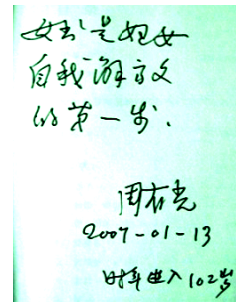 女书是妇女
自我解放
的第一步.
周有光
2007-01-13
时年进入102岁